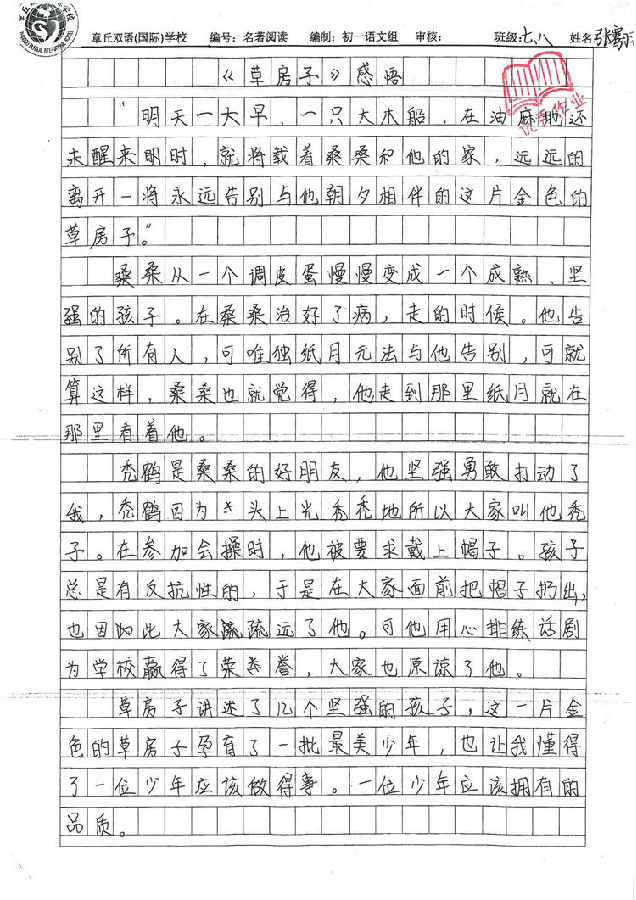 章丘双语(国际)学校 编号：名著阅读 编制：初一语文组 审核： 班级:七.八 姓名
《草房子》感悟
“明天一大早，一只大木船，在油麻地还
未醒来时，就将载着桑桑和他的家，远远的
离开—将永远告别与他朝夕相伴的这片金色的
草房子。”
桑桑从一个调皮蛋慢慢变成一个成熟、坚
强的孩子。在桑桑治好了病，走的时候。他告
别了所有人，可唯独纸月无法与他告别，可就
算这样，桑桑也就觉得，他走到那里纸月就在
那里看着他。
秃鹤是桑桑的好朋友，他坚强勇敢打动了
我，秃鹤因为头上光秃秃地所以大家叫他秃
子。在参加会操时，他被要求戴上帽子。孩子
总是有反抗性的，于是在大家面前把帽子扔出，
也因此大家疏远了他。可他用心排练话剧
为学校赢得了荣誉，大家也原谅了他。
草房子讲述了几个坚强的孩子，这一片金
色的草房子孕育了一批最美少年，也让我懂得
了一位少年应该做得事。一位少年应该拥有的
品质。